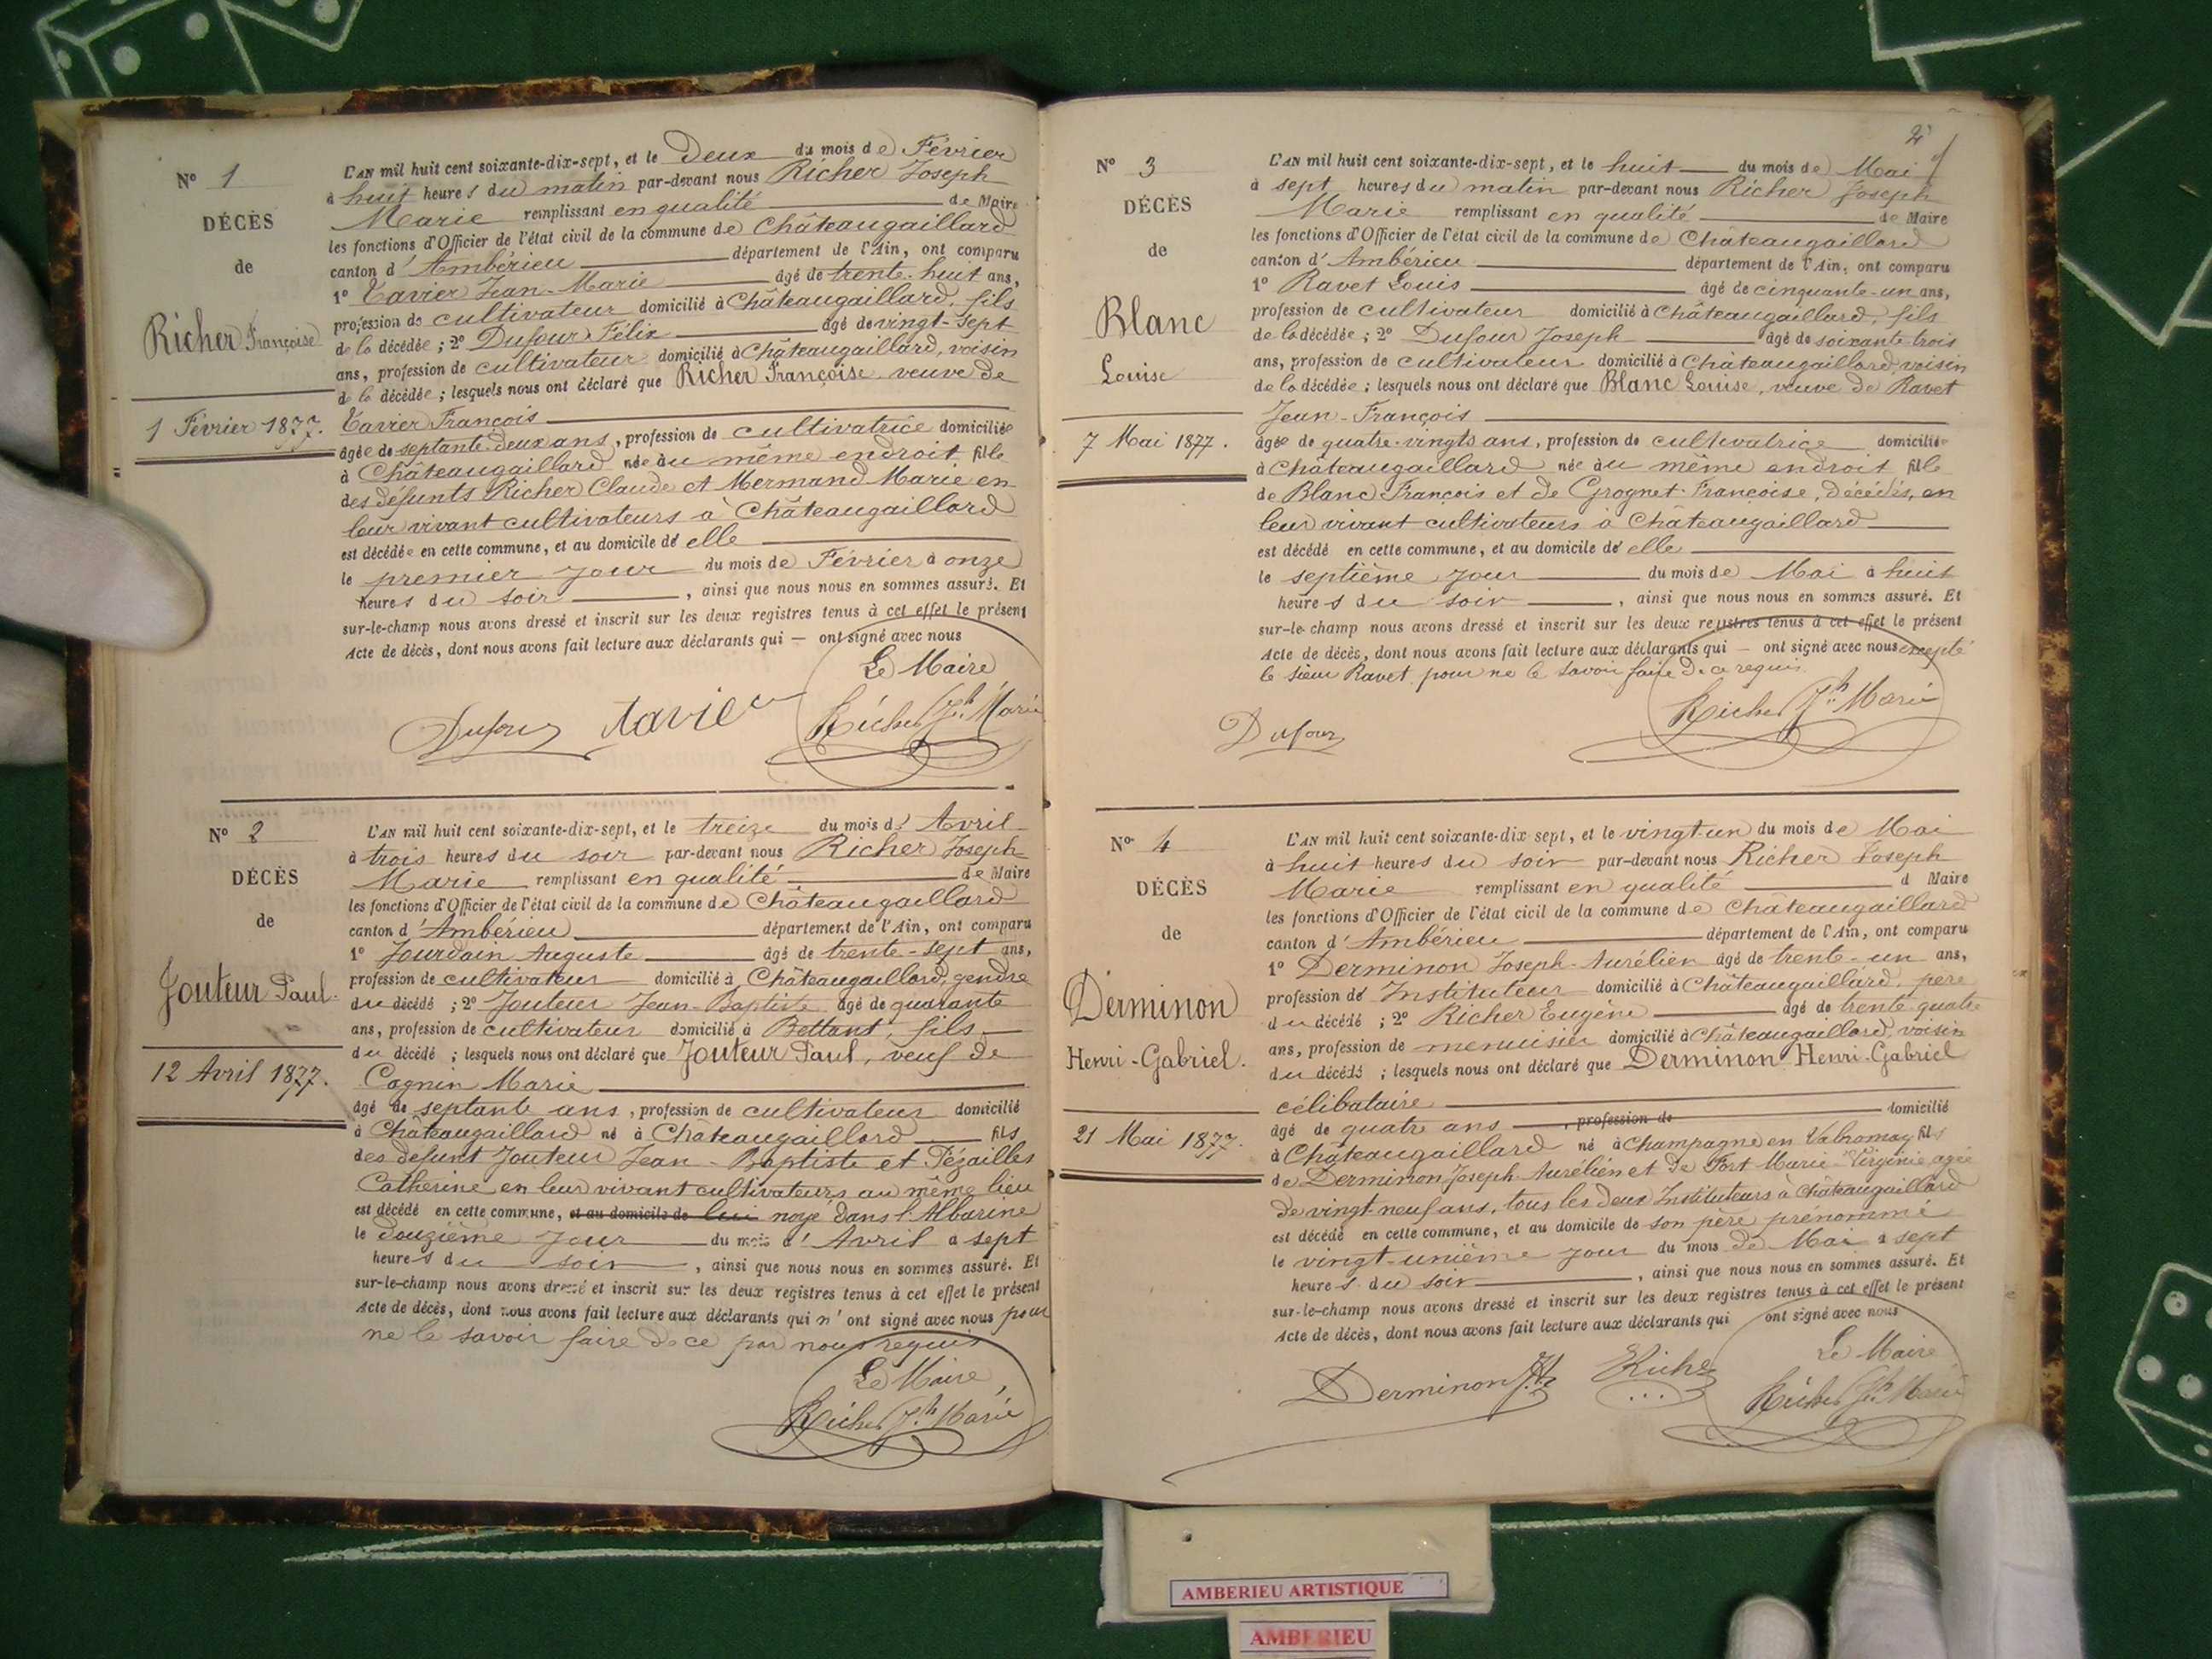 N° 1
DÉCÈS
de
Richer Françoise
1 Février 1877.
L'AN mil huit cent soixante-dix-sept, et le Deux du mois de Février
à huit heures du matin par-devant nous Richer Joseph
Marie remplissant en qualité de Maire
les fonctions d'Officier de l'état civil de la commune de Châteaugaillard
canton d'Ambérieu département de l'Ain, ont comparu
1° Tavier Jean-Marie âgé de trente-huit ans,
profession de cultivateur domicilié à Châteaugaillard, fils
de la décédée ; 2° Dufour Félix âgé de vingt-sept
ans, profession de cultivateur domicilié à Châteaugaillard, voisin
de la décédée ; lesquels nous ont déclaré que Richer Françoise veuve de
Tavier François
âgée de septante-deux ans, profession de cultivatrice domiciliée
à Châteaugaillard née au même endroit fille
des défunts Richer Claude et Mermand Marie en
leur vivant cultivateurs à Châteaugaillard
est décédée en cette commune, et au domicile de elle
le premier jour du mois de Février à onze
heures du soir, ainsi que nous nous en sommes assuré. Et
sur-le-champ nous avons dressé et inscrit sur les deux registres tenus à cet effet le présent
Acte de décès, dont nous avons fait lecture aux déclarants qui — ont signé avec nous
Le Maire
Dufour Tavier Richer Jh Marie
N° 2
DÉCÈS
de
Jouteur Paul.
12 Avril 1877.
L'AN mil huit cent soixante-dix-sept, et le treize du mois d' Avril
à trois heures du soir par-devant nous Richer Joseph
Marie remplissant en qualité de Maire
les fonctions d'Officier de l'état civil de la commune de Châteaugaillard
canton d'Ambérieu département de l'Ain, ont comparu
1° Jourdain Auguste âgé de trente-sept ans,
profession de cultivateur domicilié à Châteaugaillard, gendre
du décédé ; 2° Jouteur Jean-Baptiste âgé de quarante
ans, profession de cultivateur domicilié à Bettant, fils
du décédé ; lesquels nous ont déclaré que Jouteur Paul, veuf de
Cognin Marie
âgé de septante ans, profession de cultivateur domicilié
à Châteaugaillard né à Châteaugaillard fils
des défunt Jouteur Jean-Baptiste et Pézailles
Catherine en leur vivant cultivateurs au même lieu
est décédé en cette commune, et au domicile de lui noyé dans l'Albarine
le douzième jour du mois d'Avril à sept
heures du soir, ainsi que nous nous en sommes assuré. Et
sur-le-champ nous avons dressé et inscrit sur les deux registres tenus à cet effet le présent
Acte de décès, dont nous avons fait lecture aux déclarants qui n'ont signé avec nous pour
ne le savoir faire de ce par nous requis
Le Maire,
Richer Jh Marie
2
N° 3
DÉCÈS
de
Blanc
Louise
7 Mai 1877.
L'AN mil huit cent soixante-dix-sept, et le huit du mois de Mai
à sept heures du matin par-devant nous Richer Joseph
Marie remplissant en qualité de Maire
les fonctions d'Officier de l'état civil de la commune de Châteaugaillard
canton d'Ambérieu département de l'Ain, ont comparu
1° Ravet Louis âgé de cinquante-un ans,
profession de cultivateur domicilié à Châteaugaillard, fils
de la décédée ; 2° Dufour Joseph âgé de soixante-trois
ans, profession de cultivateur domicilié à Châteaugaillard, voisin
de la décédée ; lesquels nous ont déclaré que Blanc Louise, veuve de Ravet
Jean-François
âgée de quatre-vingts ans, profession de cultivatrice domiciliée
à Châteaugaillard née au même endroit fille
de Blanc François et de Grognet Françoise, décédés, en
leur vivant cultivateurs à Châteaugaillard
est décédé en cette commune, et au domicile de elle
le septième jour du mois de Mai à huit
heures du soir, ainsi que nous nous en sommes assuré. Et
sur-le-champ nous avons dressé et inscrit sur les deux registres tenus à cet effet le présent
Acte de décès, dont nous avons fait lecture aux déclarants qui — ont signé avec nous excepté
le sieur Ravet pour ne le savoir faire de ce requis
Dufour Richer Jh Marie
N° 4
DÉCÈS
de
Derminon
Henri-Gabriel.
21 Mai 1877.
L'AN mil huit cent soixante-dix-sept, et le vingt-un du mois de Mai
à huit heures du soir par-devant nous Richer Joseph
Marie remplissant en qualité d Maire
les fonctions d'Officier de l'état civil de la commune de Châteaugaillard
canton d'Ambérieu département de l'Ain, ont comparu
1° Derminon Joseph-Aurélien âgé de trente-un ans,
profession de Instituteur domicilié à Châteaugaillard, père
du décédé ; 2° Richer Eugène âgé de trente-quatre
ans, profession de menuisier domicilié à Châteaugaillard, voisin
du décédé ; lesquels nous ont déclaré que Derminon Henri-Gabriel
célibataire
âgé de quatre ans, profession de domicilié
à Châteaugaillard né à Champagne en Valromay fils
de Derminon Joseph Aurélien et de Fort Marie-Virginie agée
de vingt neuf ans, tous les deux Instituteurs à Châteaugaillard
est décédé en cette commune, et au domicile de son père prénommé
le vingt-unième jour du mois de Mai à sept
heures du soir, ainsi que nous nous en sommes assuré. Et
sur-le-champ nous avons dressé et inscrit sur les deux registres tenus à cet effet le présent
Acte de décès, dont nous avons fait lecture aux déclarants qui ont signé avec nous
Le Maire
Derminon Richer Richer Jh Marie
AMBERIEU ARTISTIQUE
AMBERIEU